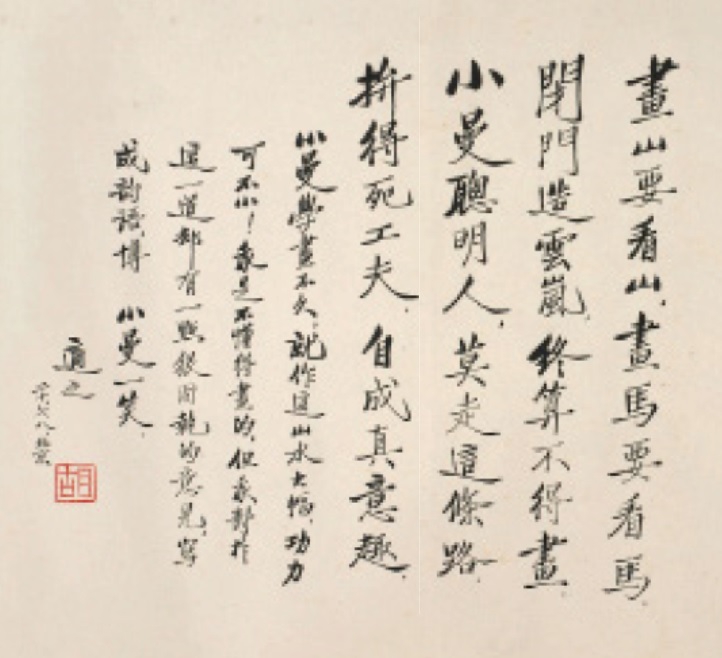 畫山要看山，畫馬要看馬，
閉門造雲嵐，終算不得畫。
小曼聰明人，莫走這條路。
拚得死工夫，自成真意趣。
小曼學畫不久，就作這山水大幅，功力
可不小！我是不懂得畫的，但我對於
這一道卻有一點很固執的意見，寫
成韵語，博 小曼一笑。
適之
二十、七、八，北京
胡